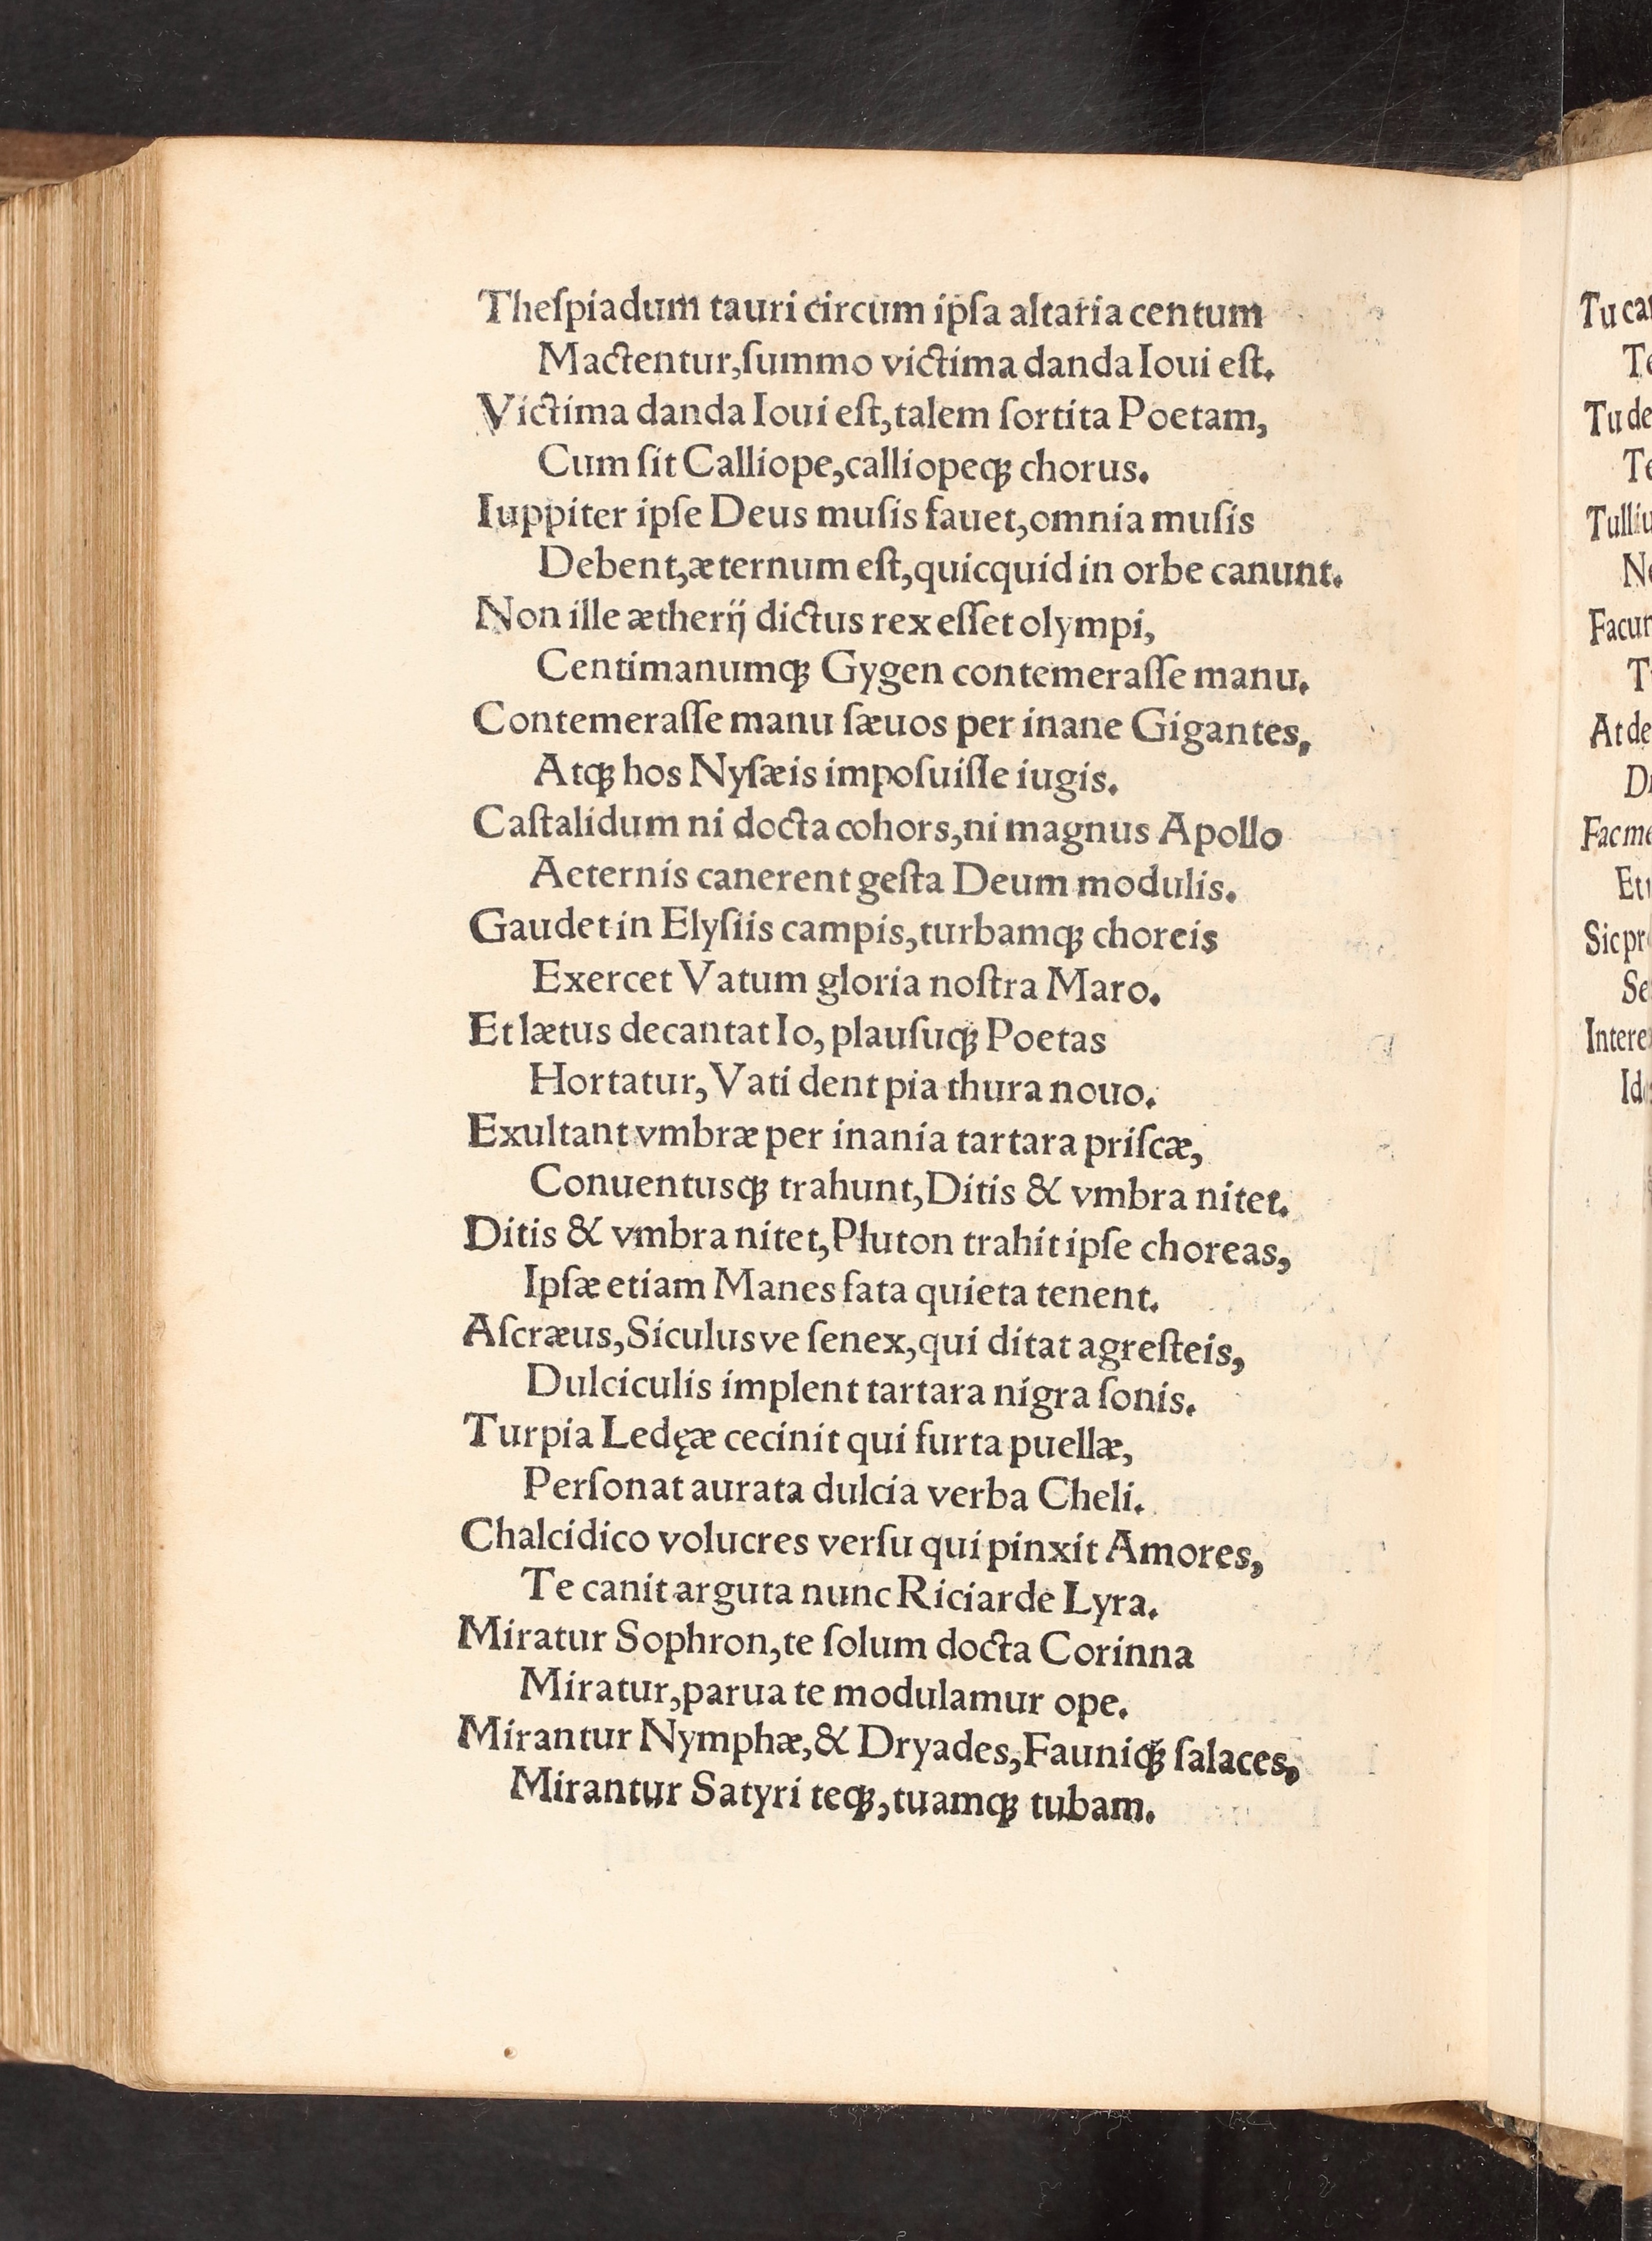 Theſpiadum tauri circum ipſa altaria centum
Mactentur,ſummo victima danda Ioui eſt.
Victima danda Ioui eſt,talem ſortita Poetam,
Cum ſit Calliope,calliopeqꝫ chorus.
Iuppiter ipſe Deus muſis fauet,omnia muſis
Debent,æternum eſt,quicquid in orbe canunt.
Non ille ætherij dictus rex eſſet olympi,
Centimanumqꝫ Gygen contemeraſſe manu.
Contemeraſſe manu ſæuos per inane Gigantes,
Atqꝫ hos Nyſæis impoſuiſſe iugis.
Caſtalidum ni docta cohors,ni magnus Apollo
Aeternis canerent geſta Deum modulis.
Gaudet in Elyſiis campis,turbamqꝫ choreis
Exercet Vatum gloria noſtra Maro.
Et lætus decantat Io, plauſuqꝫ Poetas
Hortatur,Vati dent pia thura nouo.
Exultant vmbræ per inania tartara priſcæ,
Conuentusqꝫ trahunt,Ditis & vmbra nitet.
Ditis & vmbra nitet,Pluton trahit ipſe choreas,
Ipſæ etiam Manes fata quieta tenent.
Aſcræus,Siculusve ſenex,qui ditat agreſteis,
Dulciculis implent tartara nigra ſonis.
Turpia Ledęæ cecinit qui furta puellæ,
Perſonat aurata dulcia verba Cheli.
Chalcidico volucres verſu qui pinxit Amores,
Te canit arguta nunc Riciarde Lyra.
Miratur Sophron,te ſolum docta Corinna
Miratur,parua te modulamur ope.
Mirantur Nymphæ,& Dryades,Fauniqꝫ ſalaces,
Mirantur Satyri teqꝫ,tuamqꝫ tubam.
Tu
Tu de
At de
Fac
Sic